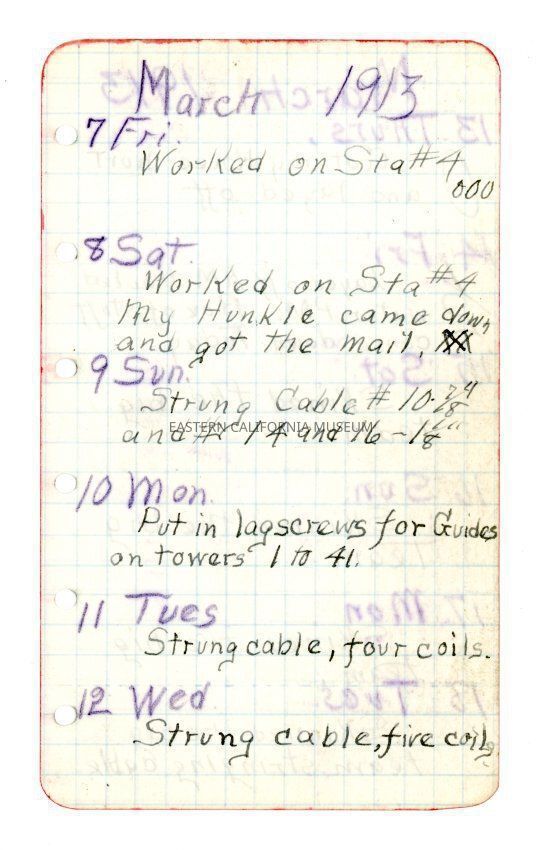 March 1913
7 Fri.
Worked on Sta #4
000
8 Sat.
Worked on Sta #4
My Hunkle came down
and got the mail. XX
9 Sun.
Strung Cable # 10-
EASTERN CALIFORNIA MUSEUM
and # 14 and 16 -
10 Mon.
Put in lagscrews for Guides
on towers 1 to 41.
11 Tues
Strung cable, four coils.
12 Wed
Strung cable, five coils